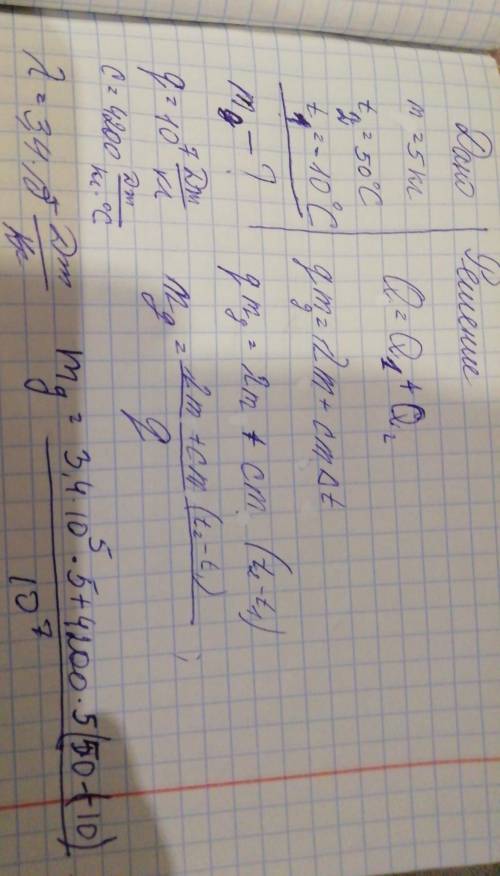 Дано
m = 5 кг
t₂ = 50°C
t₁ = -10°C
m_g - ?
q = 10⁷ Дж/кг
c = 4200 Дж/кг·°C
λ = 3,4·10⁵ Дж/кг
Решение
Q = Q₁ + Q₂
qm_g = λm + cmΔt
qm_g = λm + cm (t₂-t₁)
m_g = λm + cm (t₂-t₁) / q ;
m_g = 3,4·10⁵·5+4200·5(50-(-10) / 10⁷